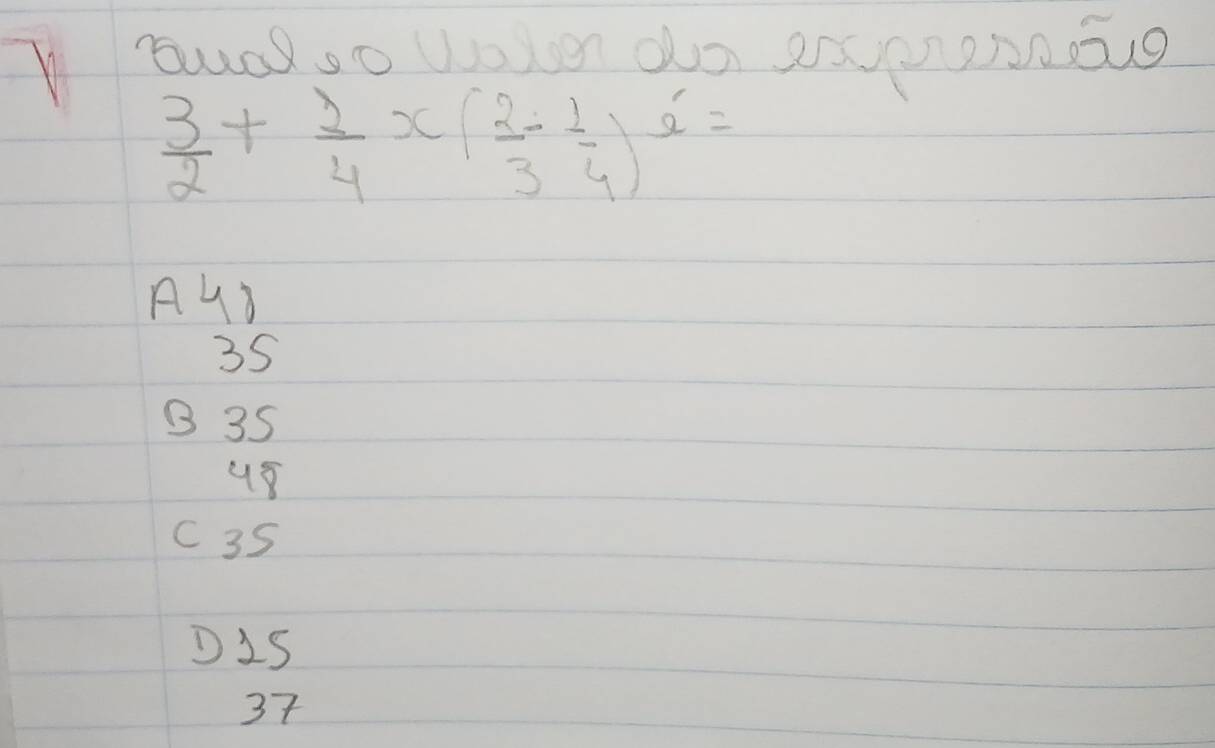 V Qual é o valor da expressão
3/2 + 1/4 x (2/3 - 1/4) é =
A 48
35
B 35
48
C 35
D 15
37